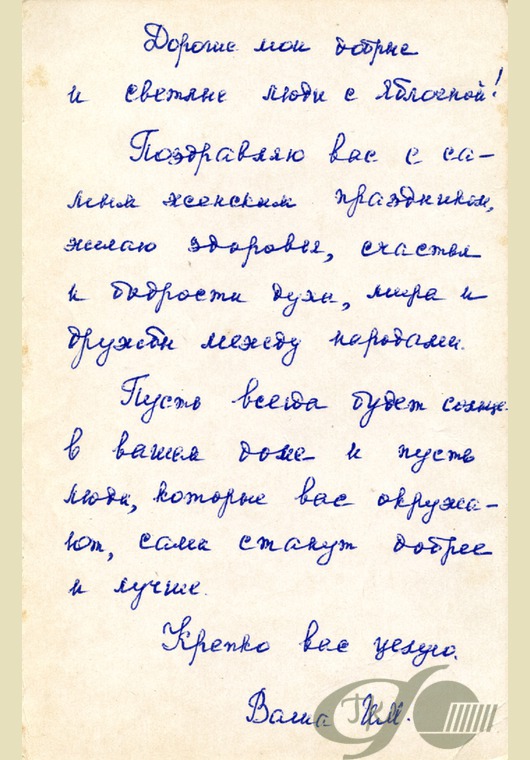 Дорогие мои добрые
и светлые люди с Яблочной!
Поздравляю вас с са-
мым женским праздником,
желаю здоровья, счастья
и бодрости духа, мира и
дружбы между народами.
Пусть всегда будет солнце
в вашем доме и пусть
люди, которые вас окружа-
ют, сами станут добрее
и лучше.
Крепко вас целую.
Ваша И.М.